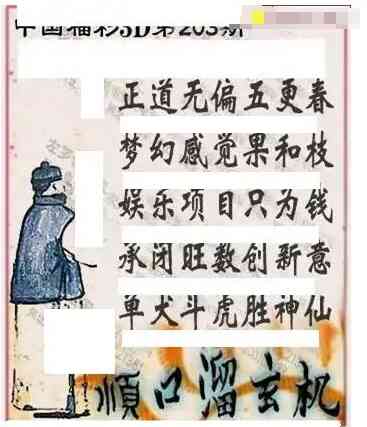 中国福彩3D第203期
正道无偏五更春
梦幻感觉果和枝
娱乐项目只为钱
承闭旺数创新意
单犬斗虎胜神仙
顺口溜玄机